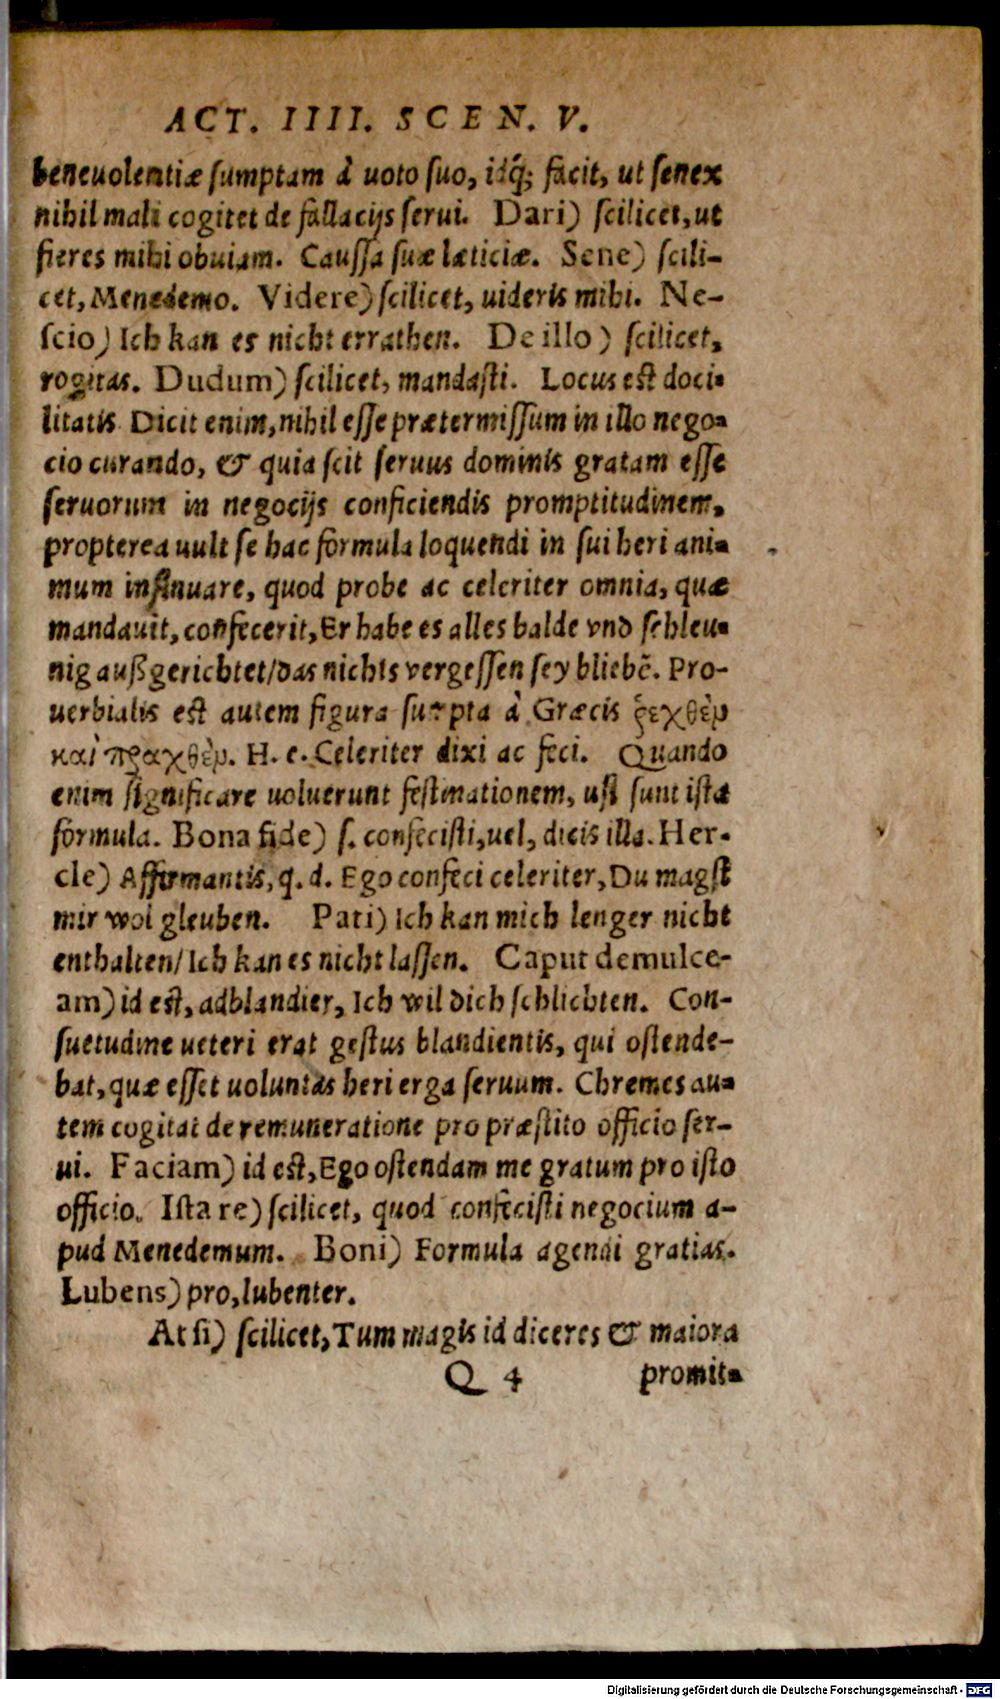 ACT. IIII. SCEN. V.
beneuolentiæ sumptam à uoto suo, idq́; facit, ut senex
nihil mali cogitet de fallacijs serui. Dari) scilicet, ut
fieres mihi obuiam. Caussa suæ læticiæ. Sene) scili-
cet, Menedemo. Videre) scilicet, uideris mihi. Ne-
scio) Ich kan es nicht errathen. De illo) scilicet,
rogitas. Dudum) scilicet, mandasti. Locus est doci-
litatis Dicit enim, nihil esse prætermissum in illo nego-
cio curando, & quia scit seruus dominis gratam esse
seruorum in negocijs conficiendis promptitudinem,
propterea uult se hac formula loquendi in sui heri ani-
mum insinuare, quod probe ac celeriter omnia, quæ
mandauit, confecerit, Er habe es alles balde vnd schleu-
nig außgerichtet/das nichts vergessen sey bliebē. Pro-
uerbialis est autem figura sumpta à Græcis ῥεχθὲν
καὶ πραχθὲν. H. e. Celeriter dixi ac feci. Quando
enim significare uoluerunt festinationem, usi sunt ista
formula. Bona fide) s. confecisti, uel, dicis illa. Her-
cle) Affirmantis, q. d. Ego confeci celeriter, Du magst
mir wol gleuben. Pati) Ich kan mich lenger nicht
enthalten/ Ich kan es nicht lassen. Caput demulce-
am) id est, adblandier, Ich wil dich schlichten. Con-
suetudine ueteri erat gestus blandientis, qui ostende-
bat, quæ esset uoluntas heri erga seruum. Chremes au-
tem cogitat de remuneratione pro præstito officio ser-
ui. Faciam) id est, Ego ostendam me gratum pro isto
officio. Ista re) scilicet, quod confecisti negocium a-
pud Menedemum. Boni) Formula agendi gratias.
Lubens) pro, lubenter.
At si) scilicet, Tum magis id diceres & maiora
Q 4 promit-
Digitalisierung gefördert durch die Deutsche Forschungsgemeinschaft - DFG